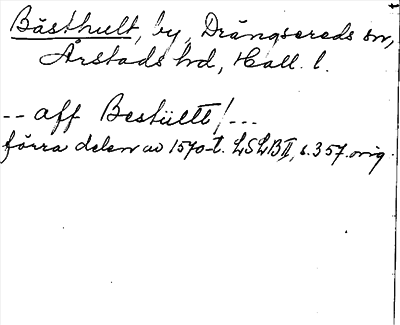 Bästhult, by, Drängsereds sn,
Årstads hd, Hall. l.
-- aff Bestüllt/---
förra delen av 1570-t. LSLB II, s. 357. orig.